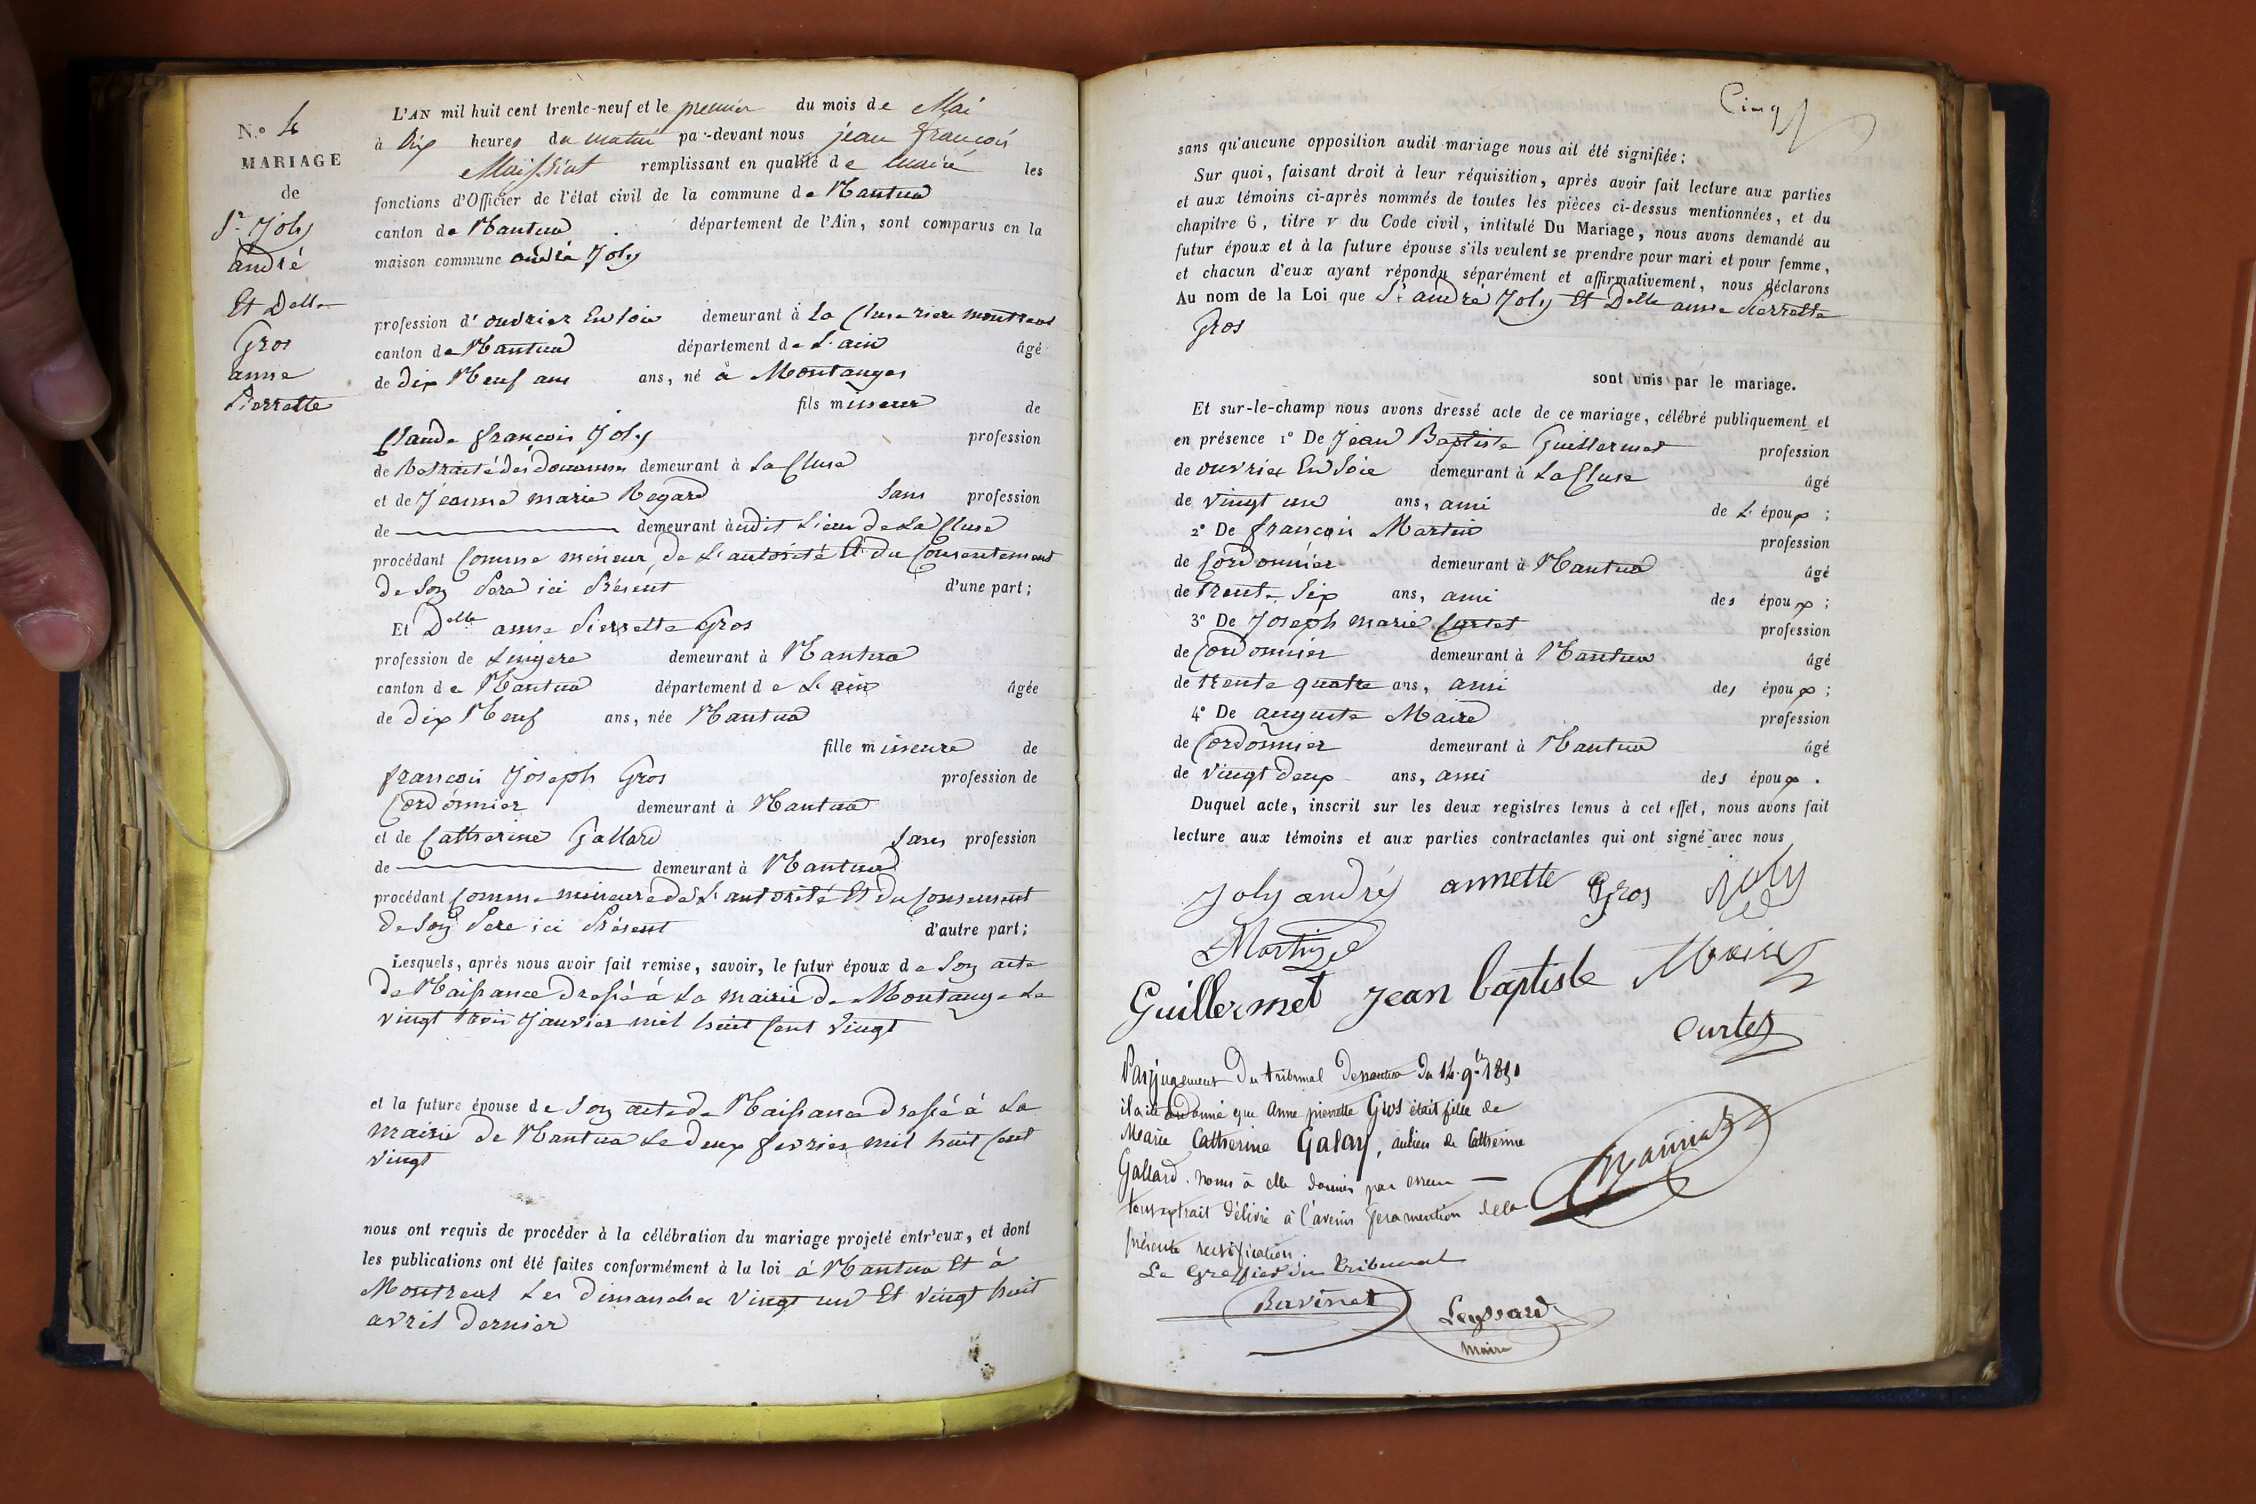 N.o 4
MARIAGE
de
Sr. Joly
André
Et Delle
Gros
anne
Pierrette
L'AN mil huit cent trente-neuf et le premier du mois de Mai
à Dix heures du matin par-devant nous jean françois
Maissiat remplissant en qualité de maire les
fonctions d'Officier de l'état civil de la commune de Nantua
canton de Nantua département de l'Ain, sont comparus en la
maison commune andré Joly
profession d'ouvrier En soie demeurant à La Cluse riere montreal
canton de Nantua département de L'ain âgé
de dix Neuf ans ans, né à Montanges
fils mineur de
Claude françois Joly profession
de Retraité des douannes demeurant à La Cluse
et de Jeanne marie Regard Sans profession
de demeurant à udit Lieu de La Cluse
procédant Comme mineur, de L'autorité Et du Consentement
de Son Pere ici Présent d'une part;
Et Delle anne Pierrette Gros
profession de Lingere demeurant à Nantua
canton de Nantua département de L'ain âgée
de dix Neuf ans, née Nantua
fille mineure de
françois Joseph Gros profession de
Cordonnier demeurant à Nantua
et de Catherine Gallard Sans profession
de demeurant à Nantua
procédant Comme mineure de L'autorité Et du Consement
de Son Pere ici Présent d'autre part;
Lesquels, après nous avoir fait remise, savoir, le futur époux de Son acte
de Naissance dressé à La mairie de Montange Le
vingt trois Janvier mil huit Cent Vingt
et la future épouse de Son acte de Naissance dressé à La
mairie de Nantua Le deux fevrier mil huit Cent
vingt
nous ont requis de procéder à la célébration du mariage projeté entr'eux, et dont
les publications ont été faites conformément à la loi à Nantua Et à
Montreal Les dimanches vingt un Et vingt huit
avril dernier
Cinq
sans qu'aucune opposition audit mariage nous ait été signifiée;
Sur quoi, faisant droit à leur réquisition, après avoir fait lecture aux parties
et aux témoins ci-après nommés de toutes les pièces ci-dessus mentionnées, et du
chapitre 6, titre v du Code civil, intitulé Du Mariage, nous avons demandé au
futur époux et à la future épouse s'ils veulent se prendre pour mari et pour femme,
et chacun d'eux ayant répondu séparément et affirmativement, nous déclarons
Au nom de la Loi que Sr. andré Joly Et Delle anne Pierrette
Gros
sont unis par le mariage.
Et sur-le-champ nous avons dressé acte de ce mariage, célébré publiquement et
en présence 1° De Jean Baptiste Guillermet profession
de ouvrier En Soie demeurant à La Cluse âgé
de vingt un ans, ami de L'époux;
2° De françois Martin profession
de Cordonnier demeurant à Nantua âgé
de trente Six ans, ami des époux;
3° De Joseph marie Curtet profession
de Cordonnier demeurant à Nantua âgé
de trente quatre ans, ami des époux;
4° De auguste Maire profession
de Cordonnier demeurant à Nantua âgé
de vingt deux ans, ami des époux.
Duquel acte, inscrit sur les deux registres tenus à cet effet, nous avons fait
lecture aux témoins et aux parties contractantes qui ont signé avec nous
Joly andré annette Gros Joly
Martin
Guillermet jean baptiste Maire
Curtet
Par jugement Du tribunal de nantua du 14. 9bre
il a été ordonné que Anne pierrette Gros était fille de
Marie Catherine Galay, au lieu de Catherine
Gallard. noms à elle donnés par erreur
tout extrait délivré à l'avenir fera mention de la
présente rectification.
Le Greffier du tribunal
Ravinet
Leyssard
maire